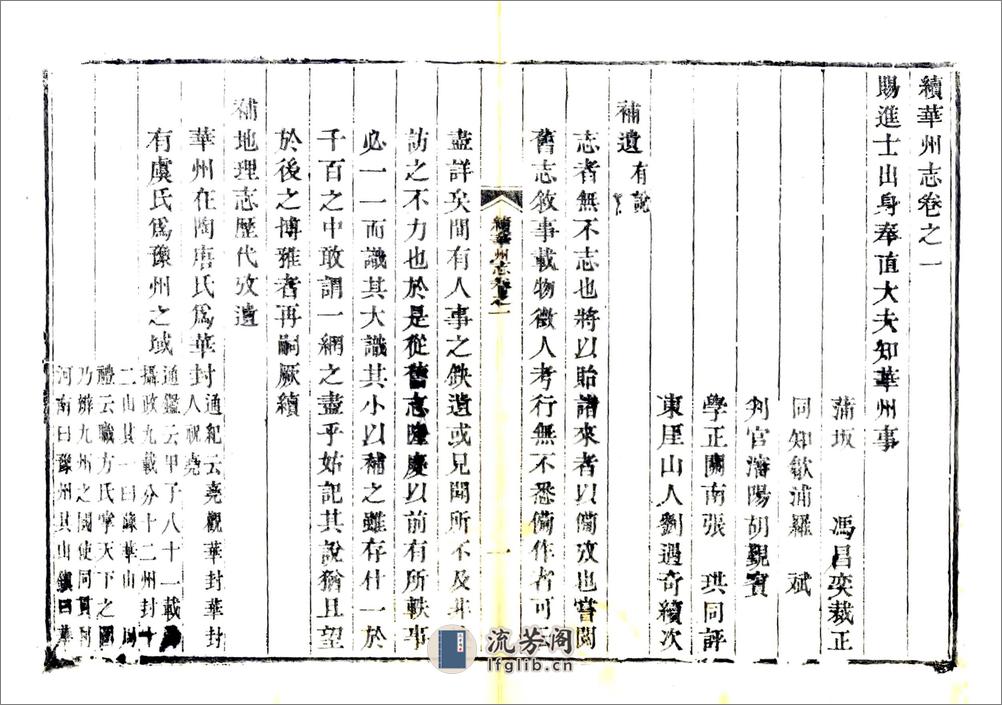 續華州志卷之一
賜進士出身奉直大夫知華州事
蒲坂 馮昌奕裁正
同知歙浦羅 斌
判官瀋陽胡覲賓
學正關南張 珙同評
東厓山人劉遇奇續次
補遺有說
志者無不志也將以貽諸來者以備攷也嘗閱
舊志敘事載物徵人考行無不悉備作者可
續華州志卷之一
一
盡詳矣間有人事之缺遺或見聞所不及非
訪之不力也於是從舊志隆慶以前有所軼事
必一一而識其大識其小以補之雖存什一於
千百之中敢謂一網之盡乎姑記其說猶且望
於後之博雅者再嗣厥續
補地理志歷代攷遺
華州在陶唐氏爲華封通紀云堯觀華封華封
人祝堯
有虞氏爲豫州之域通鑑云甲子八十一載
攝政九載分十二州封十
二山其一曰豫華山周
禮云職方氏掌天下之圖
乃辨九州之國使同貫利
河南曰豫州其山鎮曰華
流芳阁
lfglib.cn